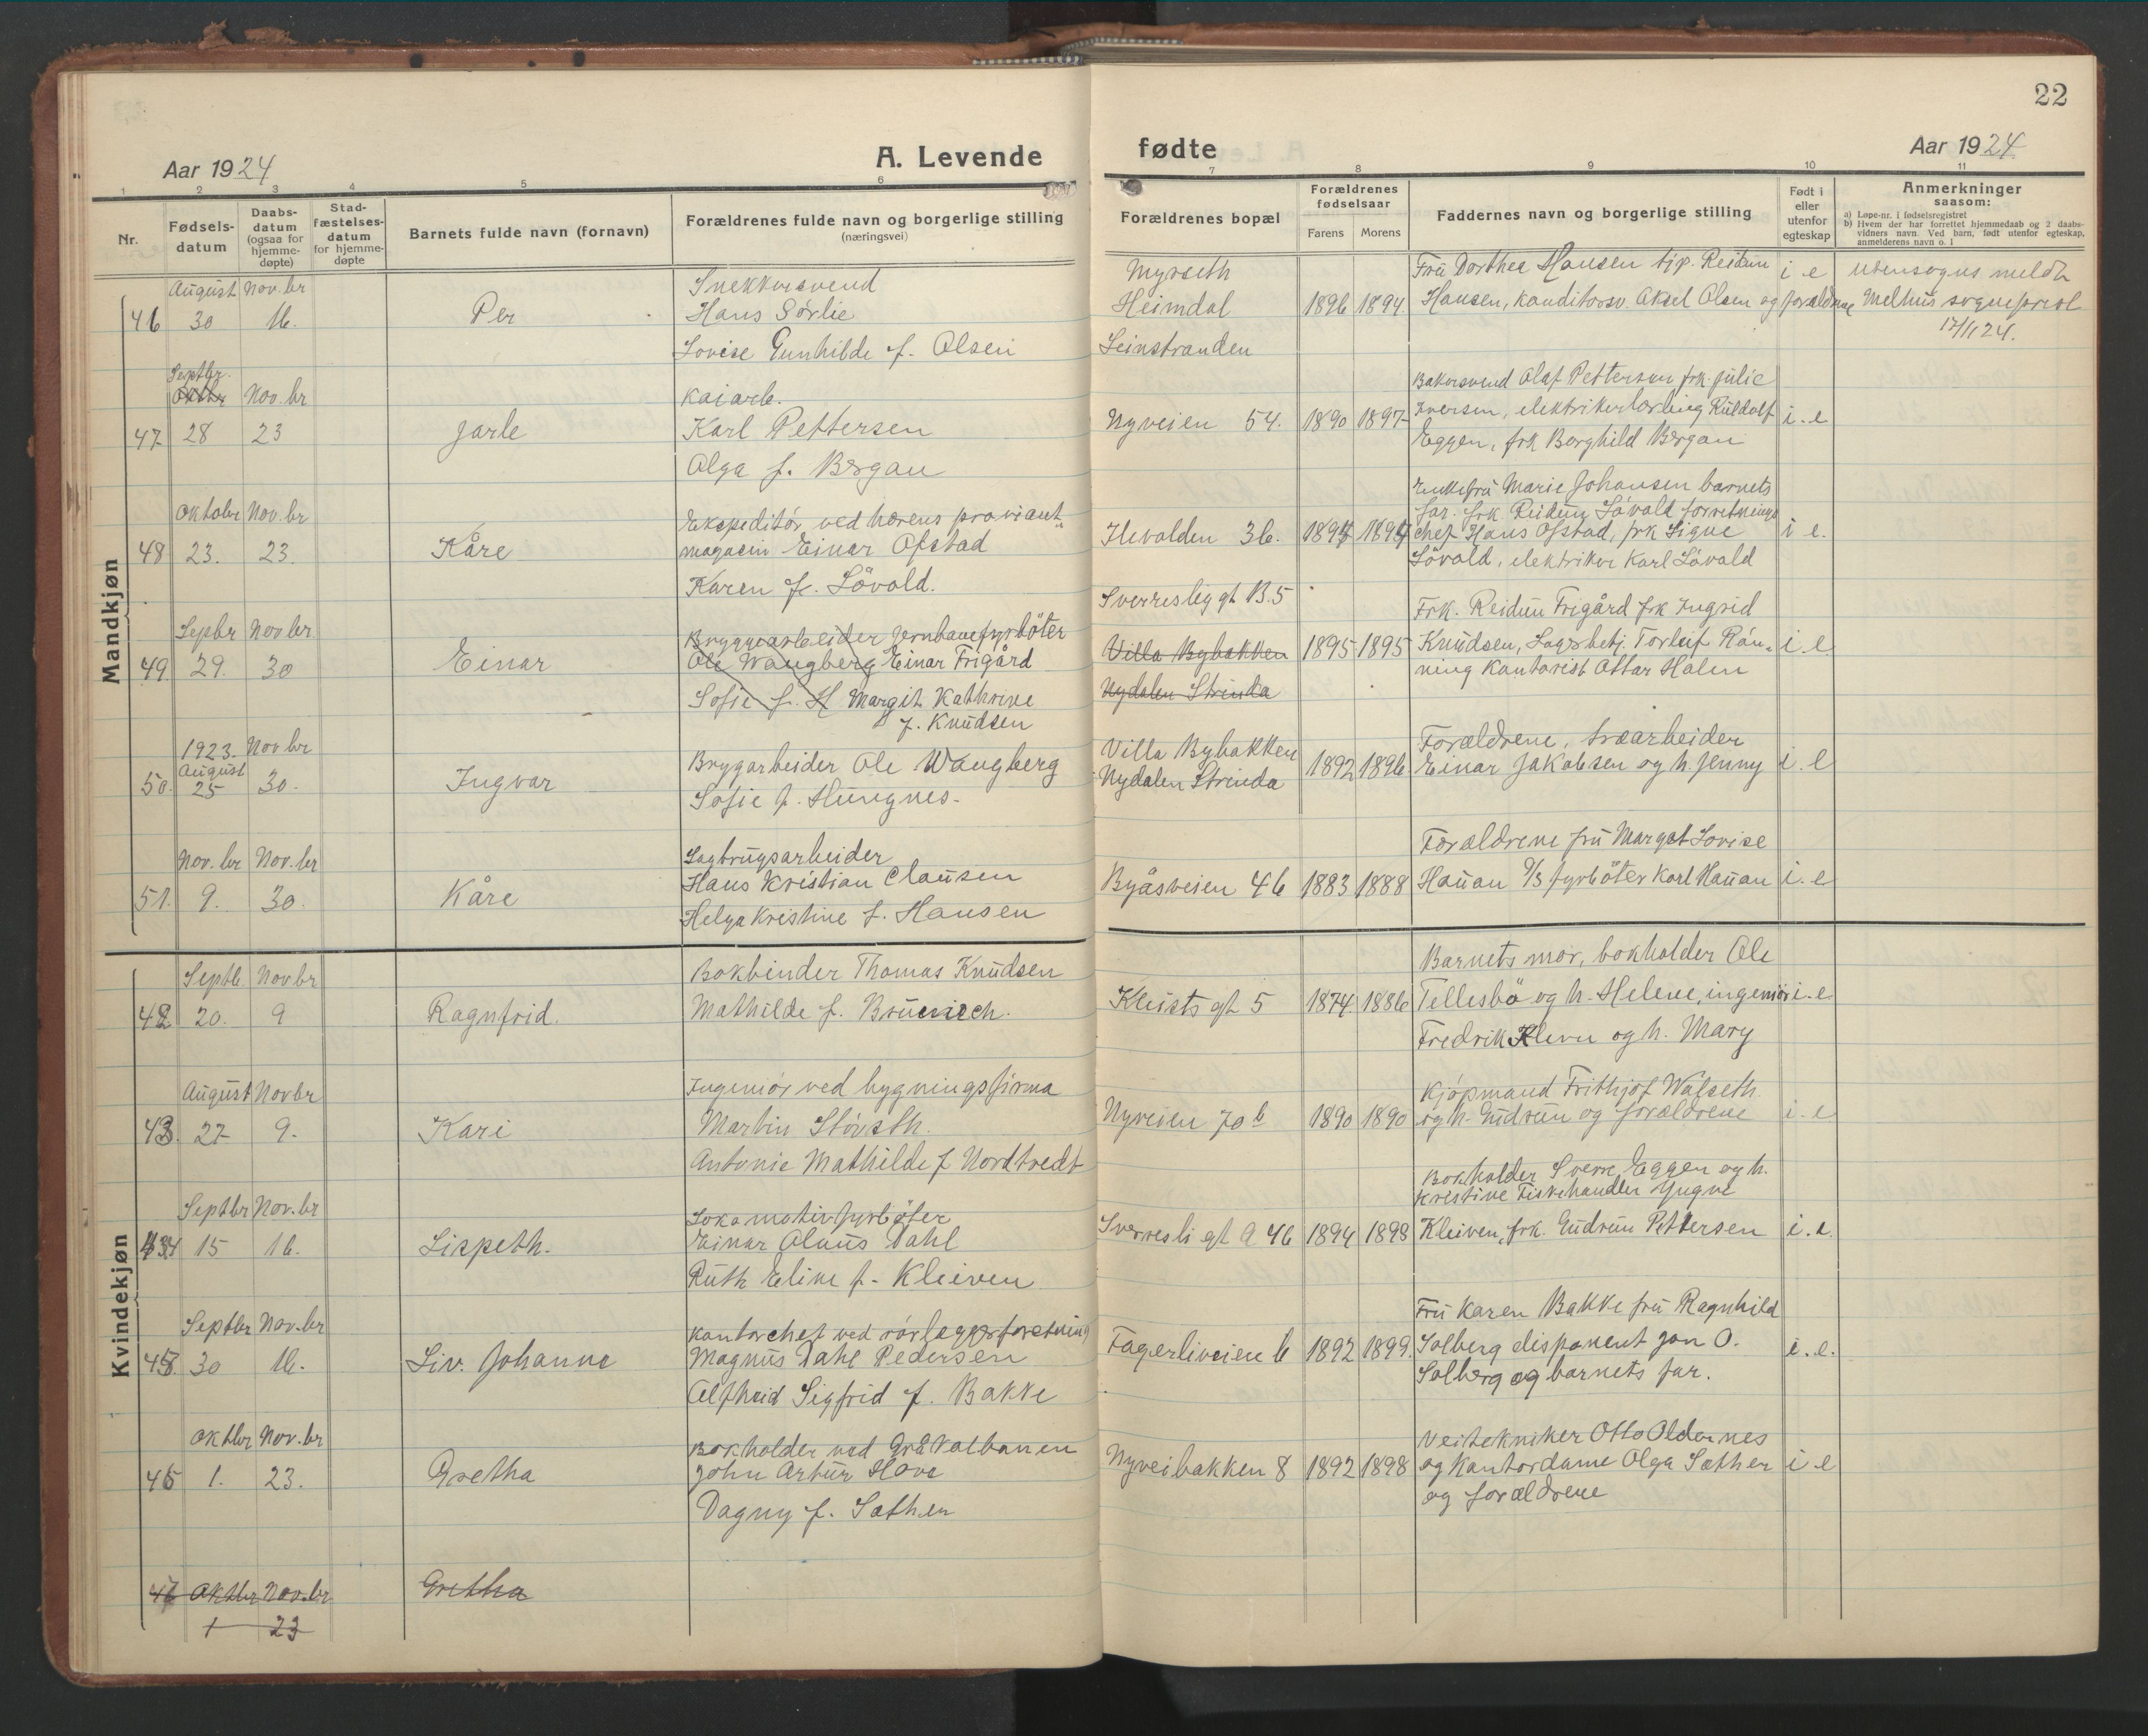 22
Aar 1924
A. Levende
fødte
Aar 1924
1 2 3 4 5 6 7 8 9 10 11
Nr.
Fødsels-
datum
Daabs-
datum
(ogsaa for
hjemme-
døpte)
Stad-
fæstelses-
datum
for hjemme-
døpte
Barnets fulde navn (fornavn)
Forældrenes fulde navn og borgerlige stilling
(næringsvei)
Forældrenes bopæl
Forældrenes
fødselsaar
Farens Morens
Faddernes navn og borgerlige stilling
Født i
eller
utenfor
egteskap
Anmerkninger
saasom:
a) Løpe-nr. i fødselsregistret
b) Hvem der har forrettet hjemmedaab og 2 daabs-
vidners navn. Ved barn, født utenfor egteskap,
anmelderens navn o. l
Mandkjøn
46
August Nov.br
30 16.
Per
Snekkersvend
Hans Sørlie
Lovise Gunhilde f. Olsen
Myrseth
Heimdal
Leinstranden
1896 1894.
Fru Dorthea Hansen tjp. Reidun
Hansen, kanditorsv. Aksel Olsen og forældrene
i e
utensogns meldt
Melhus sogneprest
17/11 24.
47
Septbr.
Oktbr Nov.br
28 23
Jarle
Kaiarb.
Karl Pettersen
Olga f. Bergan
Nyveien 54.
1890 1897
Bakersvend Olaf Pettersen frk. Julie
Iversen, elektrikerlærling Ruldolf
Eggen, frk Borghild Bergan
i. e
48
Oktobr Nov.br
23. 23.
Kåre
Ekspeditør ved hærens proviant
magasin Einar Ofstad
Karen f. Lövold.
Ilevolden 36.
1894 1894
Enkefru Marie Johansen barnets
far. frk Reidun Lövold forretnings
chef Hans Ofstad, frk Signe
Lövold, elektriker Karl Lövold
i e.
49
Sepbr Novbr
29. 30
Einar
Bryggearbeider Jernbanefyrböter
Ole Waugberg Einar Frigård
Sofie f. H Margit Kathrine
f. Knudsen
Sverresligt B.5
Villa Bybakken
Nydalen Strinda
1895 1895
Frk. Reidun Frigård frk Ingrid
Knudsen, Lagerbetj. Torleif Rön-
ning kontorist Ottar Halen
i. e.
50.
1923. Novbr
August
25 30.
Ingvar
Brygarbeider Ole Waugberg
Sofie f. Hungnes.
Villa Bybakken
Nydalen Strinda
1892 1896
Forældrene, træarbeider
Einar Jakobsen og h. Jenny
i. e
51.
Nov.br Nov.br
9. 30.
Kåre
Sagbrugsarbeider
Hans Kristian Clausen
Helga Kristine f. Hansen
Byåsveien 46
1883 1888
Forældrene fru Margot Lovise
Hauan D/S fyrböter Karl Hauan
i. e
Kvindekjøn
42
Septb. Novbr
20. 9
Ragnfrid.
Bokbinder Thomas Knudsen
Mathilde f. Bruenech.
Kleists gt 5
1874. 1886
Barnets mor, bokholder Ole
Tellesbö og h. Helene, ingeniør
Fredrik Klevn og h. Mary
i. e
43.
August Novbr
27 9.
Kari
Ingeniør ved bygningsfirma
Martin Störseth.
Antonie Mathilde f Nordtvedt
Nyveien 70 b
1890 1890
Kjøpmand Frithjof Walseth
og h. Gudrun og forældrene
i. e
44
Septbr Nov.br
15 16.
Lispeth.
Lokomotivfyrböter
Einar Olaus Dahl
Ruth Eline f. Kleiven
Sverresli gt A 46
1894 1898
Bokholder Sverre Eggen og h.
Kristine Fiskehandler Yngve
Kleiven, frk. Gudrun Pettersen
i. e.
45
Septbr Nov.br
30 16.
Liv. Johanne
Kontorchef ved rörleggerforetning
Magnus Dahl Pedersen
Alfheid Sigfrid f. Bakke
Fagerliveien 6
1892 1899.
Fru Karen Bakke fru Ragnhild
Solberg disponent Jon O.
Solberg og barnets far.
i. e.
46
Oktbr Nov.br
1. 23.
Gretha
Bokholder ved Gråkalbanen
John Artur Hove
Dagny f. Sather
Nyveibakken 8
1892 1898
Veitekniker Otto Aldernes
og Kontordame Olga Sæther
og forældrene
i e
46 Oktbr Nov.br
1 23
Gretha